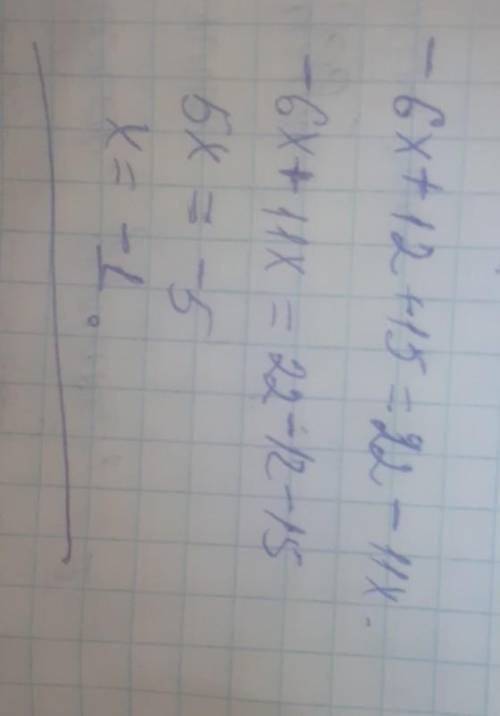 -6x+12+15=22-11x.
-6x+11x=22-12-15
5x=-5
x=-1.